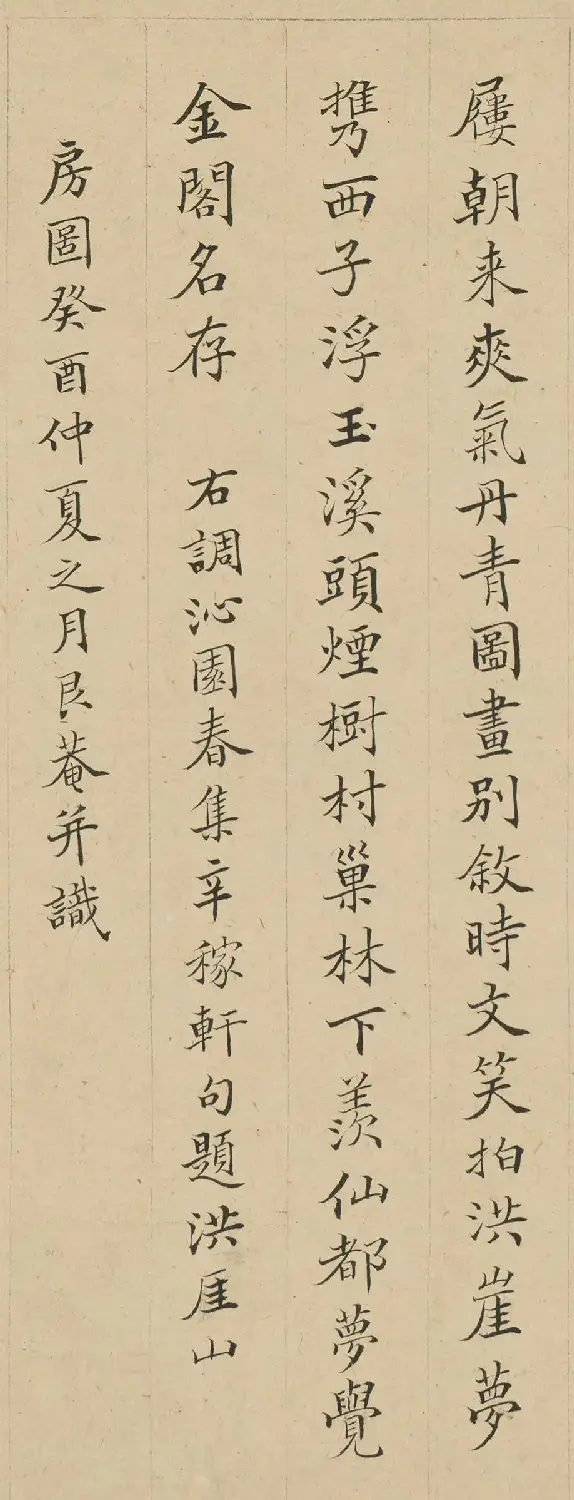 屨朝来爽氣丹青圖畫別敘時文笑拍洪崖夢
攜西子浮玉溪頭煙樹村巢林下羨仙都夢覺
金閣名存　右調沁園春集辛稼軒句題洪厓山
房圖癸酉仲夏之月艮菴并識